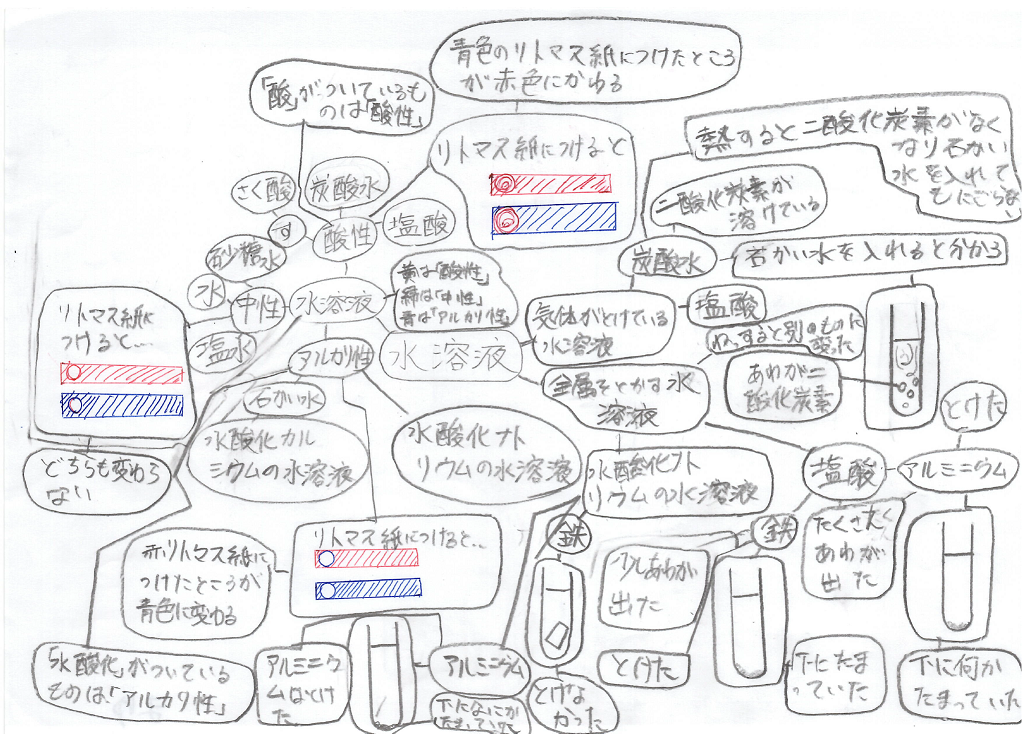 青色のリトマス紙につけたところ
が赤色にかわる
「酸」がついているも
のは「酸性」
リトマス紙につけると
熱すると二酸化炭素がなく
なり石かい
水を入れて
もにごらな
二酸化炭素が
溶けている
さく酸
炭酸水
す
酸性
塩酸
砂糖水
水
中性
水溶液
塩水
黄は「酸性」
緑は「中性」
青は「アルカリ性」
炭酸水
石かい水を入れると分かる
気体がとけている
水溶液
塩酸
ねっすると別のものに
変った
あわが二
酸化炭素
リトマス紙に
つけると…
アルカリ性
水溶液
金属をとかす水
溶液
とけた
石かい水
どちらも変わら
ない
水酸化カル
シウムの水溶液
水酸化ナト
リウムの水溶液
水酸化ナト
リウムの水溶液
塩酸
アルミニウム
鉄
鉄
たくさん
あわが
出た
リトマス紙につけると…
赤リトマス紙に
つけたところが
青色に変わる
少しあわが
出た
とけた
下にたま
っていた
下に何か
たまっていた
「水酸化」がついている
ものは「アルカリ性」
アルミニウ
ムはとけ
た
アルミニウム
下になにか
たまっていた
とけな
かった